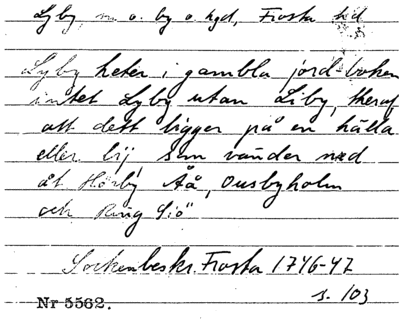 Lyby, sn o. by o. hgd, Frosta hd
Lyby heter i gambla jord-boken
intet Lyby utan Liby, theraf,
att dett ligger på en hälla
eller lij, som vänder ned
åt Hörby Åå, Ousbyholm
och Ring Siö"
Sockenbeskr. Frosta 1746-47
s. 103
Nr 5562.